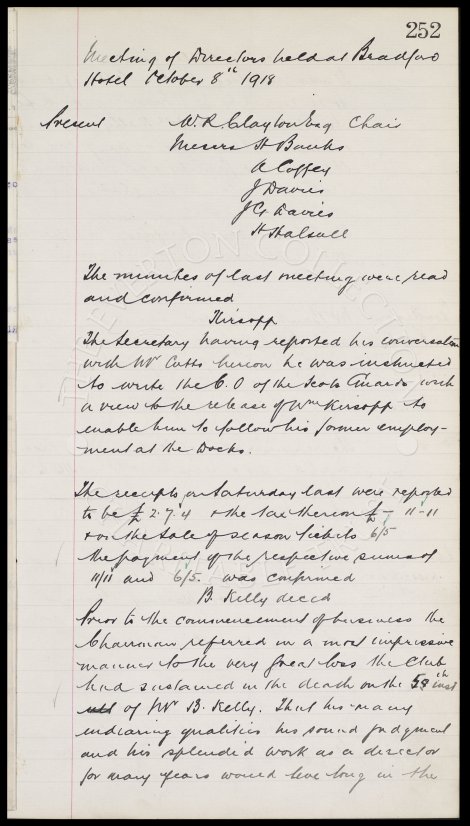 252
Meeting of Directors held at Bradford
Hotel October 8th 1918
Present W.R. Clayton Esq Chair
Messrs H Banks
A Coffey
J Davies
J G Davies
H Halsall
The minutes of last meeting were read
and confirmed
Kirsopp
The Secretary having reported his conversation
with Mr Cutts hereon he was instructed
to write the C.O of the Scots Guards with
a view to the release of Wm Kirsopp to
enable him to follow his former employ-
ment at the Docks.
The receipts on Saturday last were reported
to be £ 2.7.4 & the tax thereon £ - 11-11
& on the Sale of season tickets 6/5
the payment of the respective sums of
11/11 and 6/5. was confirmed
B. Kelly decd
Prior to the commencement of business the
Chairman referred in a most impressive
manner to the very great loss the Club
had sustained in the death on the 5th inst
of Mr B. Kelly. That his many
endearing qualities his sound judgment
and his splendid work as a director
for many years would live long in the
THE EVERTON COLLECTION